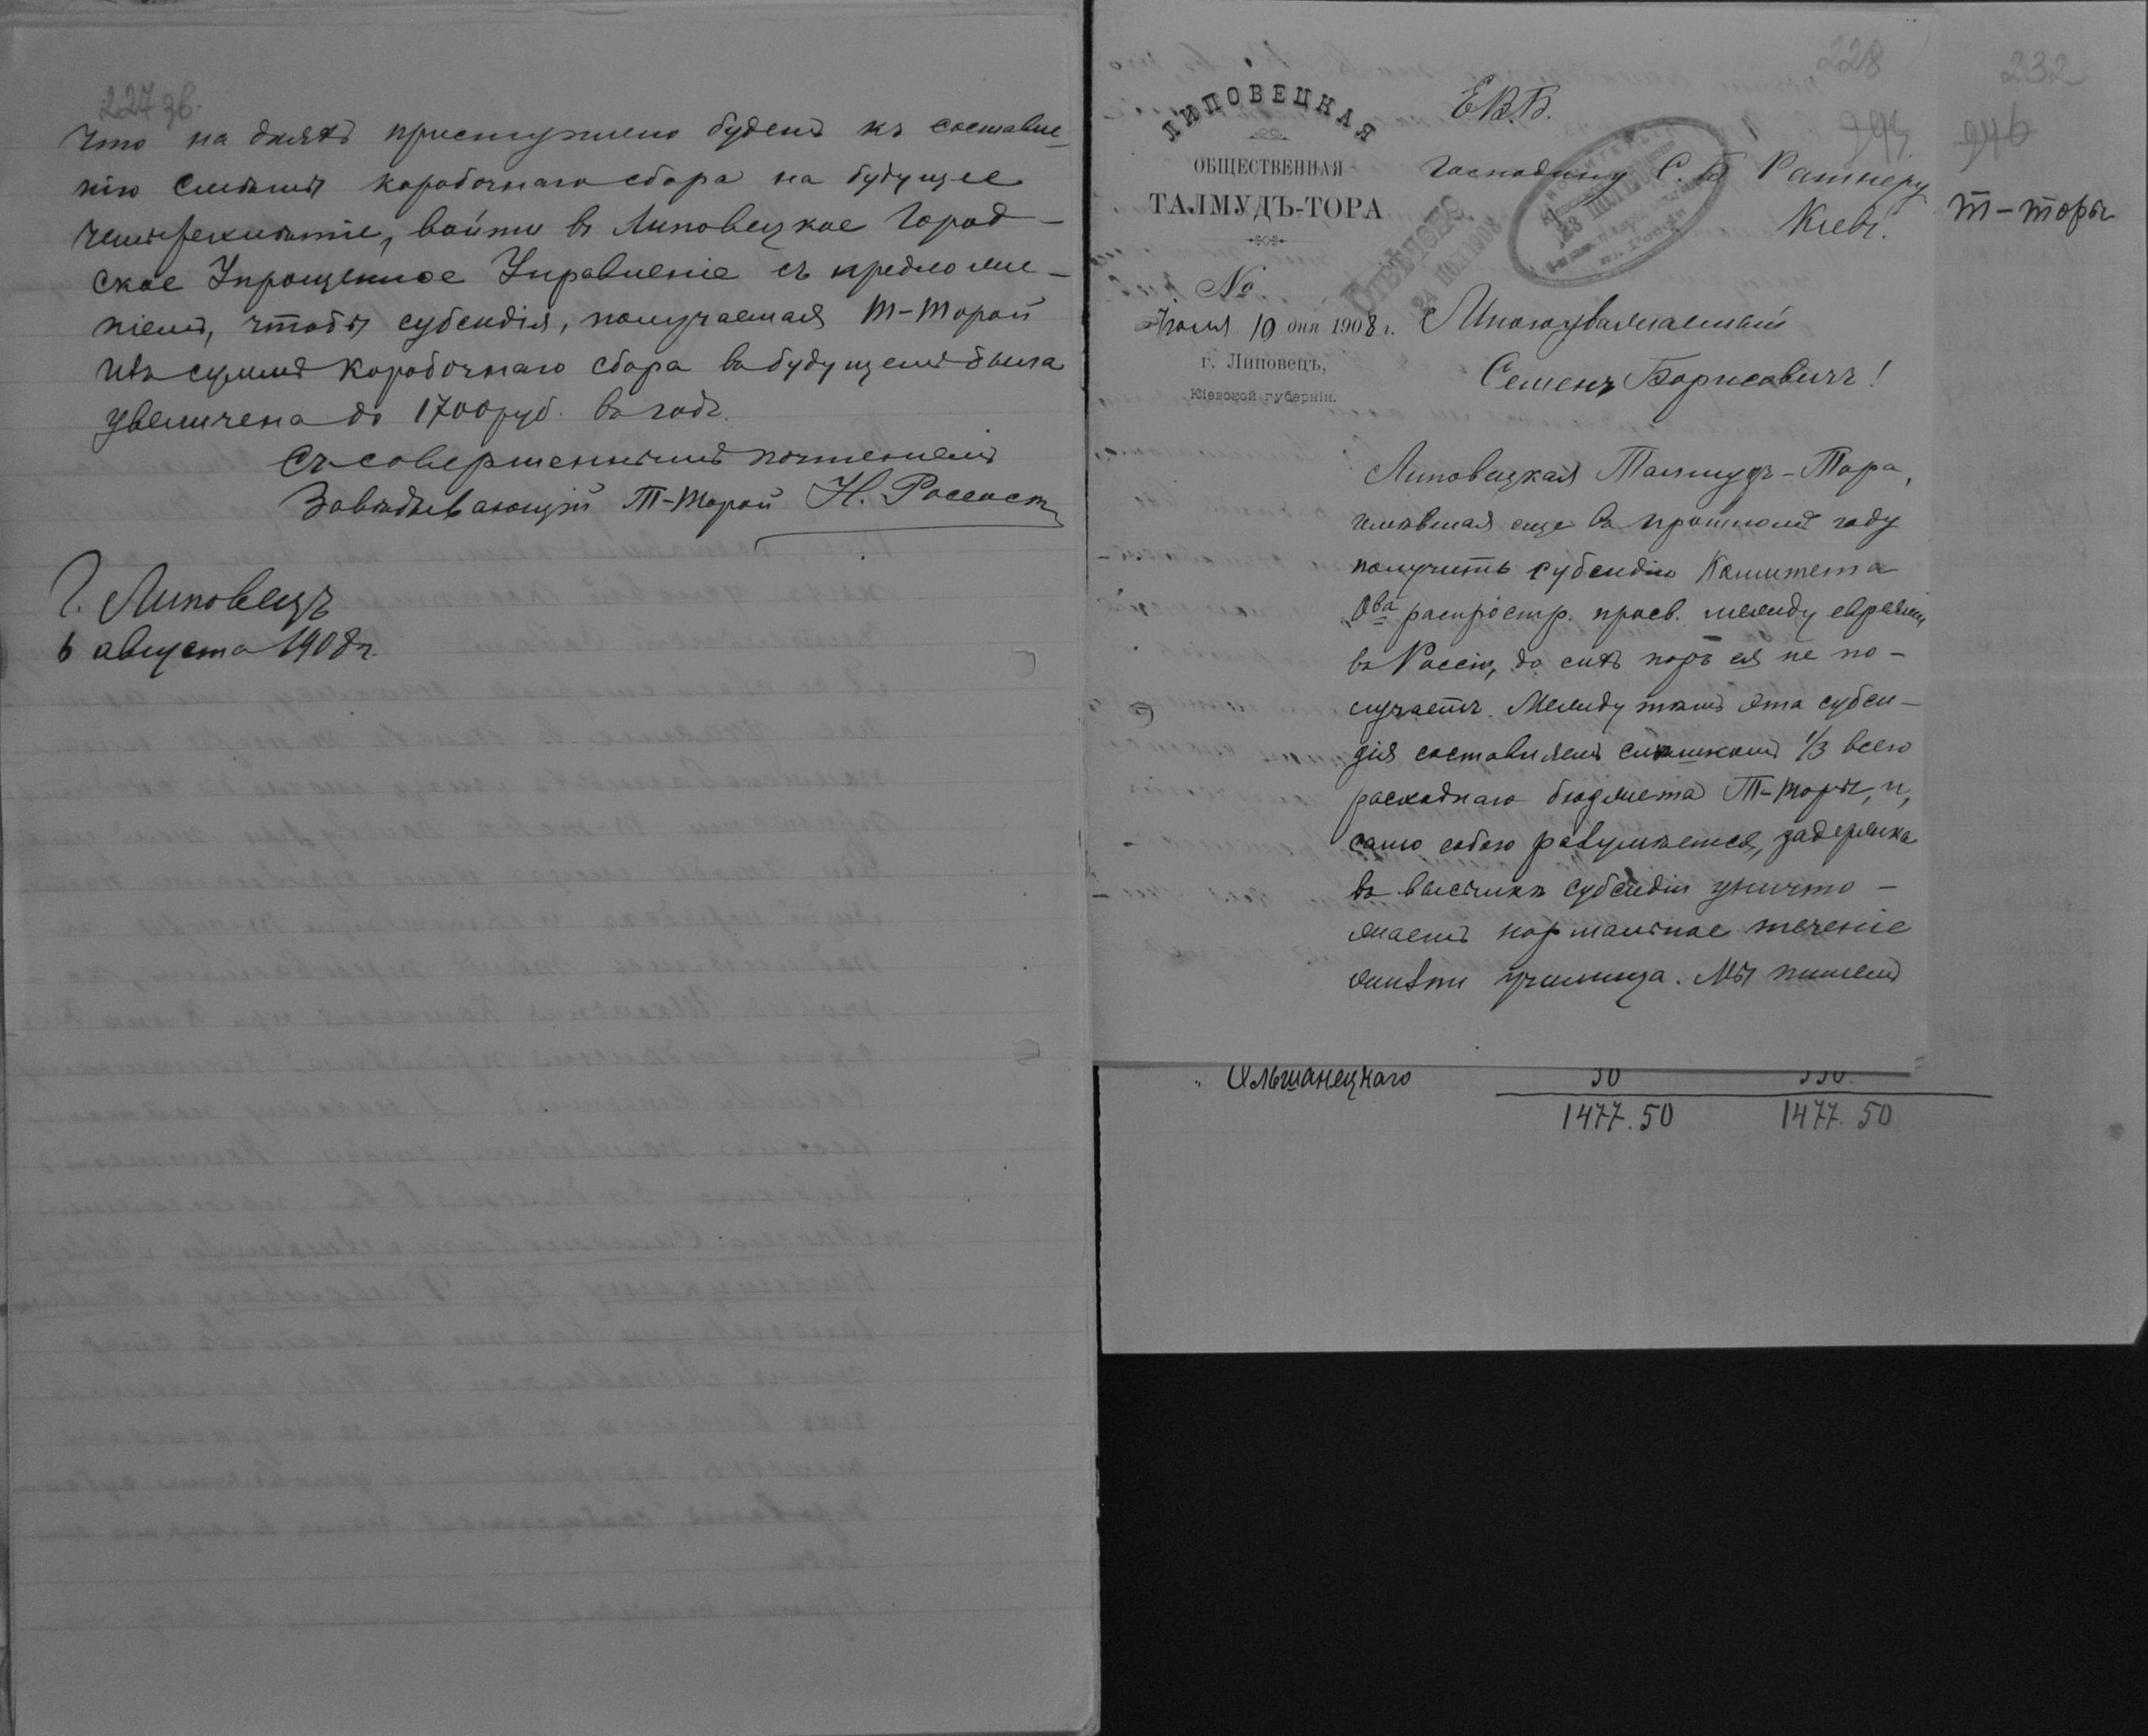 227 зв.
Что на дняхъ приступлено будетъ къ составле-
нію смѣты коробочнаго сбора на будущее
четырехлѣтіе, войти въ Липовецкое Город-
ское Упрощенное Управленіе съ предложе-
ніемъ, чтобы субсидія, получаемая Т-Торой
изъ суммъ коробочнаго сбора въ будущемъ была
увеличена до 1700 руб. въ годъ.
Съ совершеннымъ почтеніемъ
Завѣдывающій Т-Торой Н.
Г. Липовецъ
6 августа 1908 г.
228
232
ЛИПОВЕЦКАЯ
ОБЩЕСТВЕННАЯ
ТАЛМУДЪ-ТОРА
№
Іюля 19 дня 1908 г.
г. Липовецъ,
Кіевской губерніи.
Е.В.Б.
Господину С. Б. Ратнеру
Кіевъ.
946
Т-Торы
24 ІЮЛ 1908
Многоуважаемый
Семенъ Борисовичъ!
Липовецкая Талмудъ-Тора,
имѣвшая еще въ прошломъ году
получить субсидію Комитета
О-ва распростр. просв. между евреями
въ Россіи, до сихъ поръ ея не по-
лучаетъ. Между тѣмъ эта субси-
дія составляетъ слишкомъ 1/3 всего
расходнаго бюджета Т-Торы, и,
само собою разумѣется, задержка
въ высылкѣ субсидіи уничто-
жаетъ нормальное теченіе
жизни училища. Мы пишемъ
" Ольшанецкаго 50 550.
1477.50 1477.50